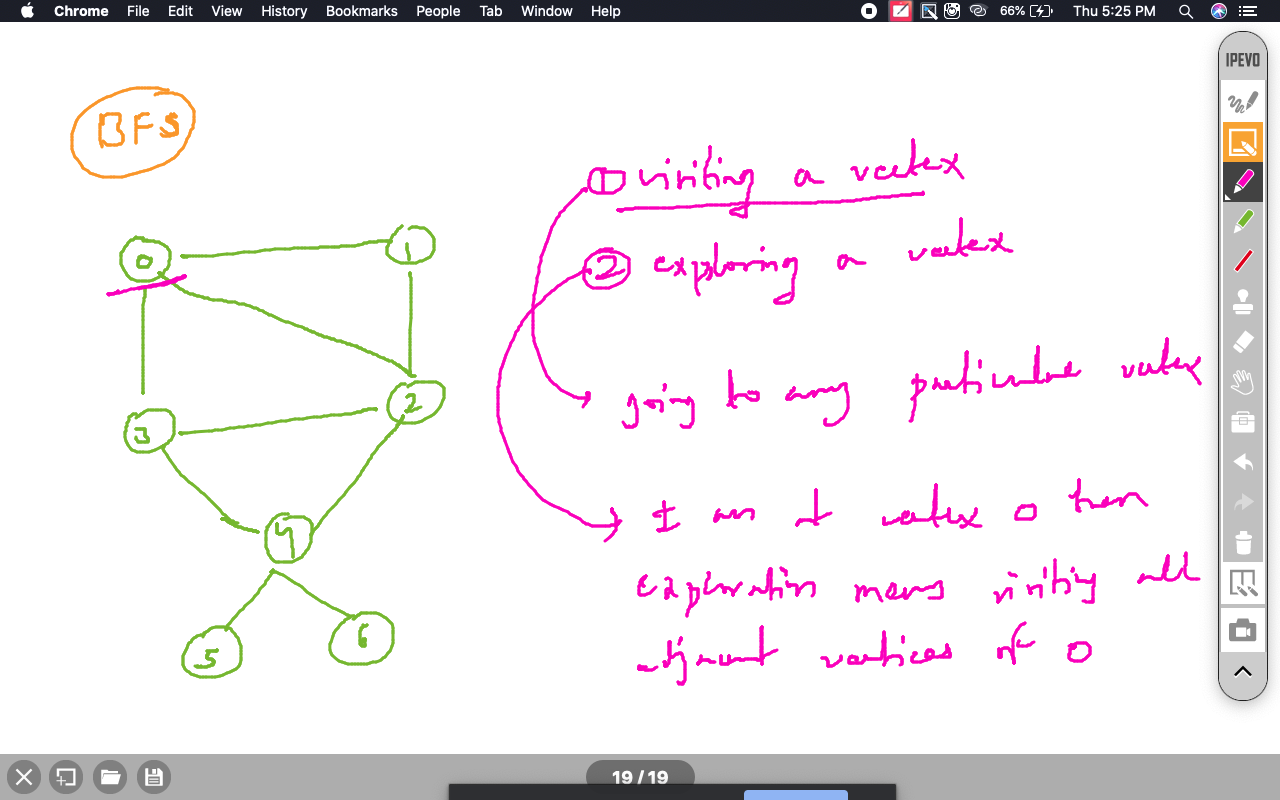 Chrome File Edit View History Bookmarks People Tab Window Help 66% Thu 5:25 PM
IPEVO
BFS
① visiting a vertex
② exploring a vertex
going to any particular vertex
I am at vertex 0 then
exploration means visiting all
adjacent vertices of 0
0
1
2
3
4
5
6
19 / 19